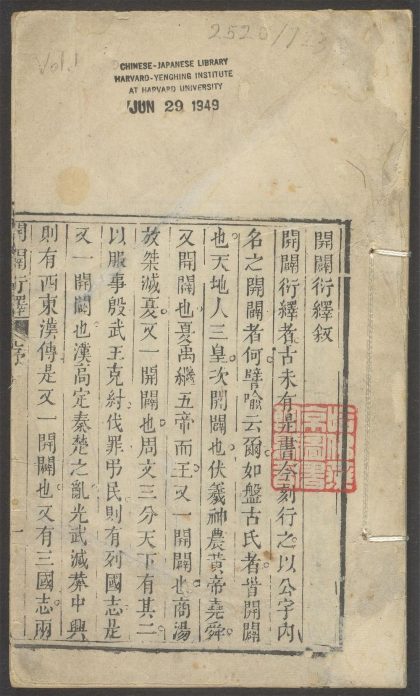 2520/1
Vol. 1
CHINESE-JAPANESE LIBRARY
HARVARD-YENCHING INSTITUTE
AT HARVARD UNIVERSITY
JUN 29 1949
開闢衍繹敘
開闢衍繹者古未有是書今刻行之以公宇內
名之開闢者何譬喻云爾如盤古氏者皆開闢
也天地人三皇次開闢也伏羲神農黃帝堯舜
又開闢也夏禹繼五帝而王又一開闢也商湯
放桀滅夏又一開闢也周文三分天下有其二
以服事殷武王克紂伐罪弔民則有列國志是
又一開闢也漢高定秦楚之亂光武滅莽中興
則有西東漢傳是又一開闢也又有三國志兩
開闢衍繹 序 一